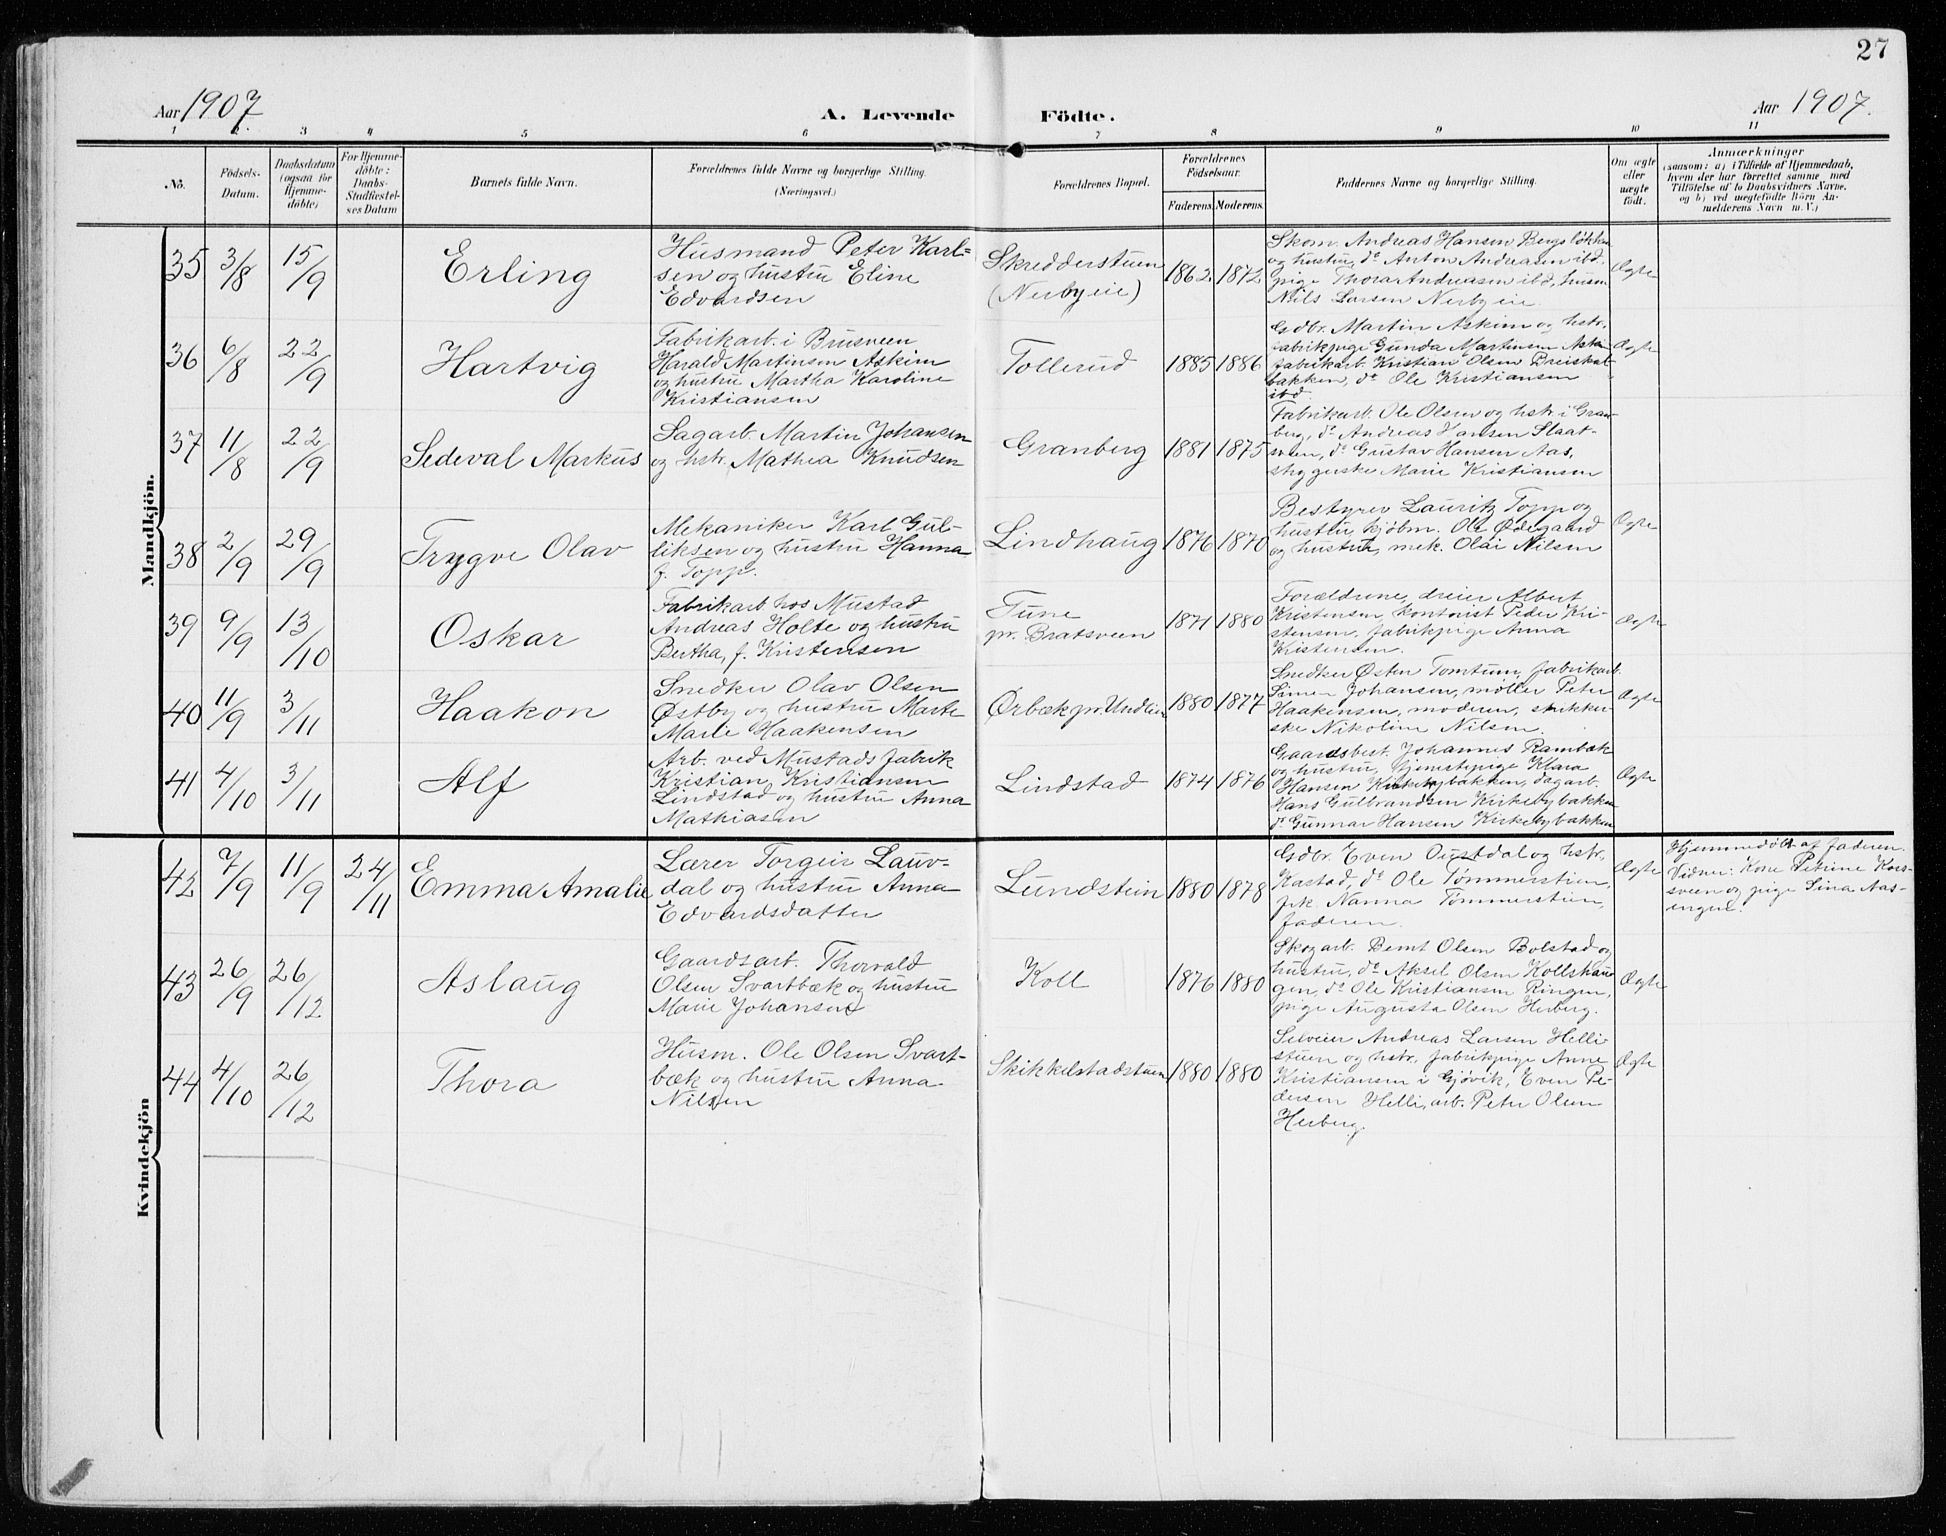 27
Aar 1907.
A. Levende Födte.
Aar 1907.
1 2. 3 4 5 6 7 8 9 10 11
No.
Födsels-
Datum.
Daabsdatum
(ogsaa for
Hjemme-
döbte)
For Hjemme-
döbte:
Daabs-
Stadfæstel-
ses Datum
Barnets fulde Navn.
Forældrenes fulde Navne og borgerlige Stilling.
(Næringsvei.)
Forældrenes Bopæl.
Forældrenes
Födselsaar.
Faderens. Moderens.
Faddernes Navne og borgerlige Stilling.
Om ægte
eller
uægte
födt.
Anmærkninger
(saasom: a) i Tilfælde af Hjemmedaab,
hvem der har forrettet samme med
Tilföielse af to Daabsvidners Navne,
og b) ved uægtefödte Börn An-
melderens Navn m. V.)
Mandkjön.
35 3/8 15/9
Erling
Husmand Peter Karl-
sen og hustru Eline
Edvardsen
Skredderstuen
(Nerby eie)
1862. 1872
Skom. Andreas Hansen Bergsløkken
og hustru, do Anton Andreasen ibd.
pige Thora Andreasen ibd, husm
Nils Larsen Nerby eie.
Ægte
36 6/8 22/9
Hartvig
Fabrikarb. i Brusveen
Harald Martinsen Askim
og hustru Martha Karoline
Kristiansen
Tollerud
1885 1886
Gdbr. Martin Askim og hstr.
fabrikpige Gunda Martinsen Askim
fabrikarb. Kristian Olsen
bakken, do Ole Kristiansen
ibd.
Ægte
37 11/8 22/9
Sedeval Markus
Sagarb. Martin Johansen
og hstr. Mathea Knudsen
Granberg
1881 1875
Fabrikarb. Ole Olsen og hstr i Gran-
berg, do Andreas Hansen Slaat-
sveen, do Gustav Hansen Aas,
Marie Kristiansen
38 2/9 29/9
Trygve Olav
Mekaniker Karl Gul-
liksen og hustru Hanna
f. Topp.
Lindhaug
1876 1870
Bestyrer Lauritz Topp og
hustru, kjøbm. Ole Ødegaard
og hustru, mek. Olai Nilsen
Ægte
39 9/9 13/10
Oskar
Fabrikarb hos Mustad
Andreas Holte og hustru
Bertha, f. Kristensen
Tune
pr. Bratsveen
1871 1880
Forældrene, dreier Albert
Kristensen, kontorist Peder Kri-
stensen, fabrikpige Anna
Kristensen.
Ægte
40 11/9 3/11
Haakon
Snedker Olav Olsen
Østby og hustru Marte
Marie Haakensen
Ørbæk pr. Undlien
1880 1877
Snedker Østen Tomtum, fabrikarb.
Simen Johansen, møller Peter
Haakensen, moderen, strikker-
ske Nikoline Nilsen.
Ægte
41 4/10 3/11
Alf
Arb. ved Mustads fabrik
Kristian Kristiansen
Lindstad og hustru Anna
Mathiasen
Lindstad
1874 1876
Gaardsbest. Johannes Rambæk
og hustru, tjenestepige Klara
Hansen Kirkebybakken, dagarb.
Hans Gulbrandsen Kirkebybakken
do Gunnar Hansen Kirkebybakken
Ægte
Kvindekjön
42 7/9 11/9 24/11
Emma Amalie
Lærer Torgeir Lauv-
dal og hustru Anna
Edvardsdatter
Lundstein
1880 1878
Gdbr. Even Oustdal og hstr.
Kastad, do Ole Tømmerstien,
frk. Nanna Tømmerstien,
faderen.
Ægte
Hjemmedøbt af faderen.
Vidner: Kone Petrine Kors-
sveen og pige Sina Aas-
engen.
43 26/9 26/12
Aslaug
Gaardsarb. Thorvald
Olsen Svartbæk og hustru
Marie Johansen
Koll
1876 1880
Skogarb. Bernt Olsen Bolstad og
hustru, do Aksel Olsen Kollshau-
gen, do Ole Kristiansen Ringen,
pige Augusta Olsen Herberg.
Ægte
44 4/10 26/12
Thora
Husm. Ole Olsen Svart-
bæk og hustru Anna
Nilsen
Skikkelstadstuen
1880 1880
Selveier Andreas Larsen Helli
stuen og hstr, fabrikpige Anne
Kristiansen i Gjøvik, Even Pe-
dersen Helli, arb. Peter Olsen
Herberg.
Ægte